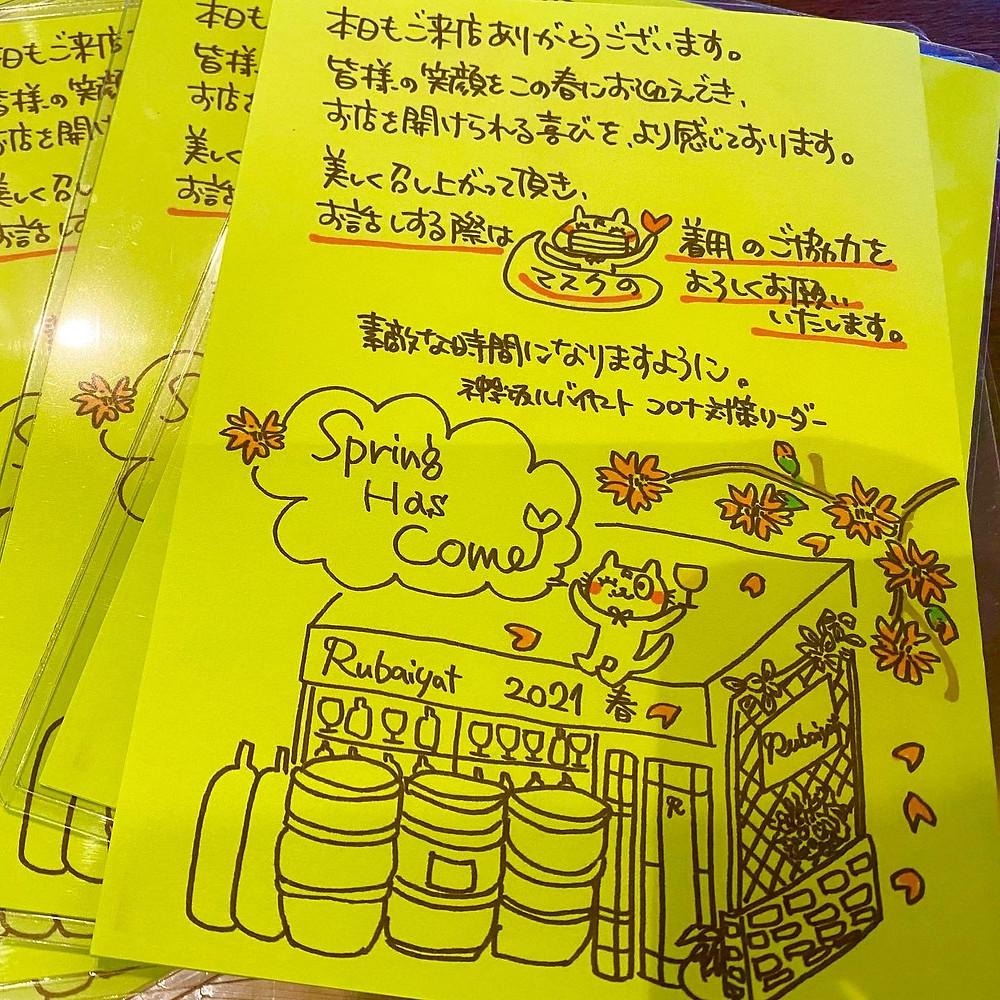 本日もご来店ありがとうございます。
皆様の笑顔をこの春にお迎えでき、
お店を開けられる喜びを、より感じております。
美しく召し上がって頂き、
お話しする際は
マスクの
着用のご協力を
よろしくお願い
いたします。
素敵な時間になりますように。
神楽坂ルバイヤート コロナ対策リーダー
Spring
Has
Come
Rubaiyat 2021 春
Rubaiyat
R
本日もご来店
皆様の笑顔
お店を開け
美しく召し
お話しす
本日も
皆様
お店
美しく
お話
S